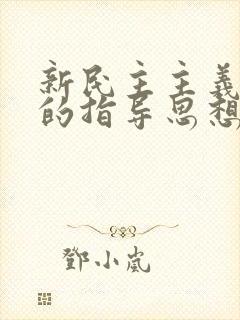 新民主主義
的指导思想
鄧小嵐